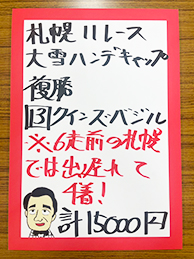 札幌11レース
大雪ハンデキャップ
複勝
13クインズバジル
※6走前の札幌
では出遅れて
4着!
計15000円